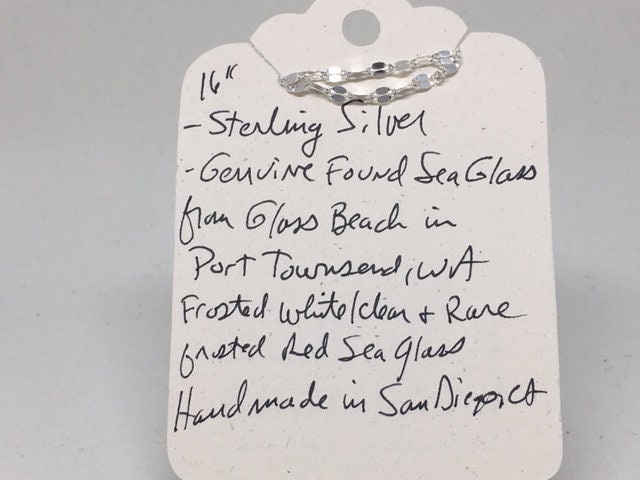 16"
- Sterling Silver
- Genuine Found Sea Glass
from Glass Beach in
Port Townsend, WA
Frosted White/clear + Rare
frosted Red Sea Glass
Handmade in San Diego, CA